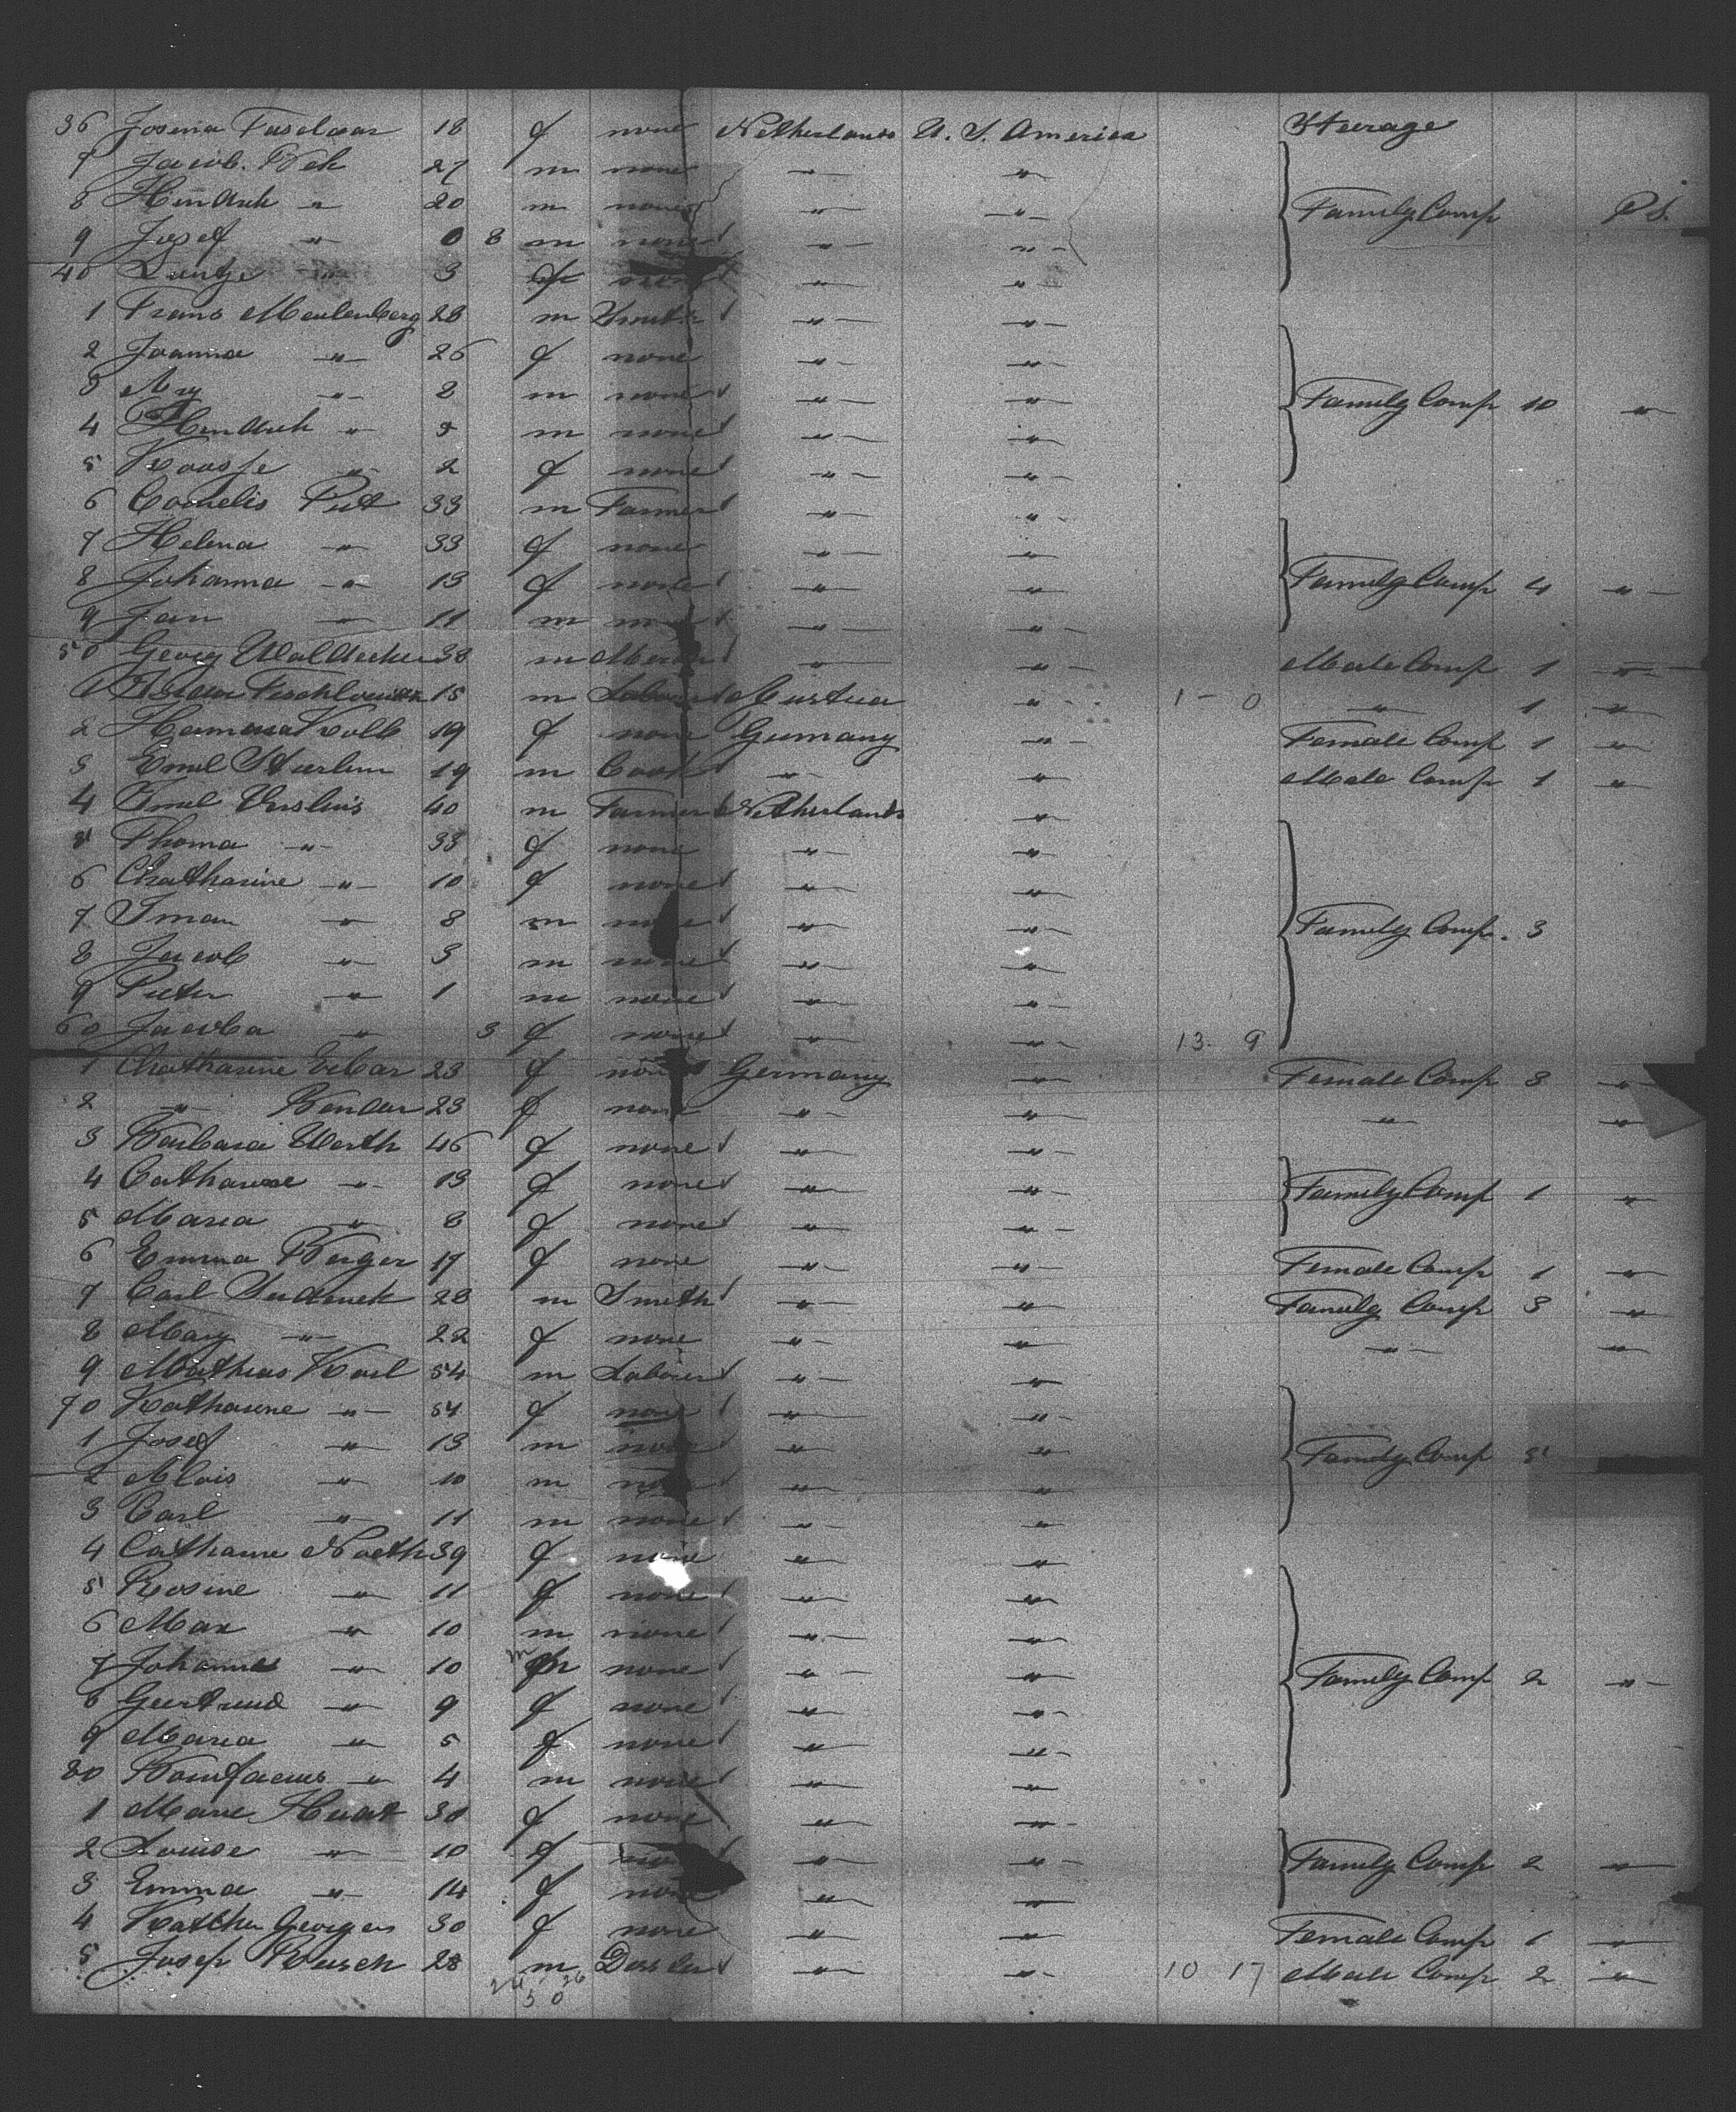 36 Josina 18 f none Netherlands U. S. America Steerage
7 Jacob 27 m none " "
8 Hendrik " 20 m none " " Family Comp P S.
9 Josef " 0 8 m none " "
40 " 3 f none " "
1 Frans Meulenberg 28 m " "
2 Joanna " 26 f none " "
3 Ary " 2 m none " " Family Comp 10 "
4 Hendrik " m none " "
5 Kaatje " 2 f none " "
6 Cornelis 33 m Farmer " "
7 Helena " 33 f none " "
8 Johanna " 13 f none " " Family Comp 4 "
9 Jan " 11 m " "
50 Georg 38 m " " Male Comp 1 "
1 15 m Labour Austria " 1 - 0 " 1 "
2 Kolb 19 f none Germany " Female Comp 1 "
3 Emil 19 m Cook " " Male Comp 1 "
4 40 m Farmer Netherlands "
5 Thoma " 33 f none " "
6 Chatharine " 10 f none " "
7 Iman " 8 m none " " Family Comp. 3
8 Jacob " 3 m none " "
9 Pieter " 1 m none " "
60 Jacoba " 3 f none " " 13. 9
1 Chatharine 23 f none Germany " Female Comp 3 "
2 " 23 f none " " " "
3 Barbara Werth 46 f none " "
4 Catharine " 13 f none " " Family Comp 1 "
5 Maria " 8 f none " "
6 Emma Berger 17 f none " " Female Comp 1 "
7 Carl 28 m Smith " " Family Comp 3 "
8 Mary " 22 f none " " " "
9 Mathias Karl 54 m Labour " "
70 Katharine " 54 f none " "
1 Josef " 13 m none " " Family Comp 5
2 Alois " 10 m " "
3 Carl " 11 m none " "
4 Catharine Noeth 39 f none " "
5 Rosine " 11 f none " "
6 Max " 10 m none " "
7 Johannes " 10 m none " " Family Comp 2 "
8 Geertrud " 9 f none " "
9 Maria " 5 f none " "
80 Bonifacius " 4 m none " "
1 Marie 30 f none " "
2 Louise " 10 f none " " Family Comp 2 "
3 Emma " 14 f none " "
4 Georger 30 f none " " Female Comp 1 "
5 Josef 28 m " " 10 17 Male Comp 2 "
24 26
50